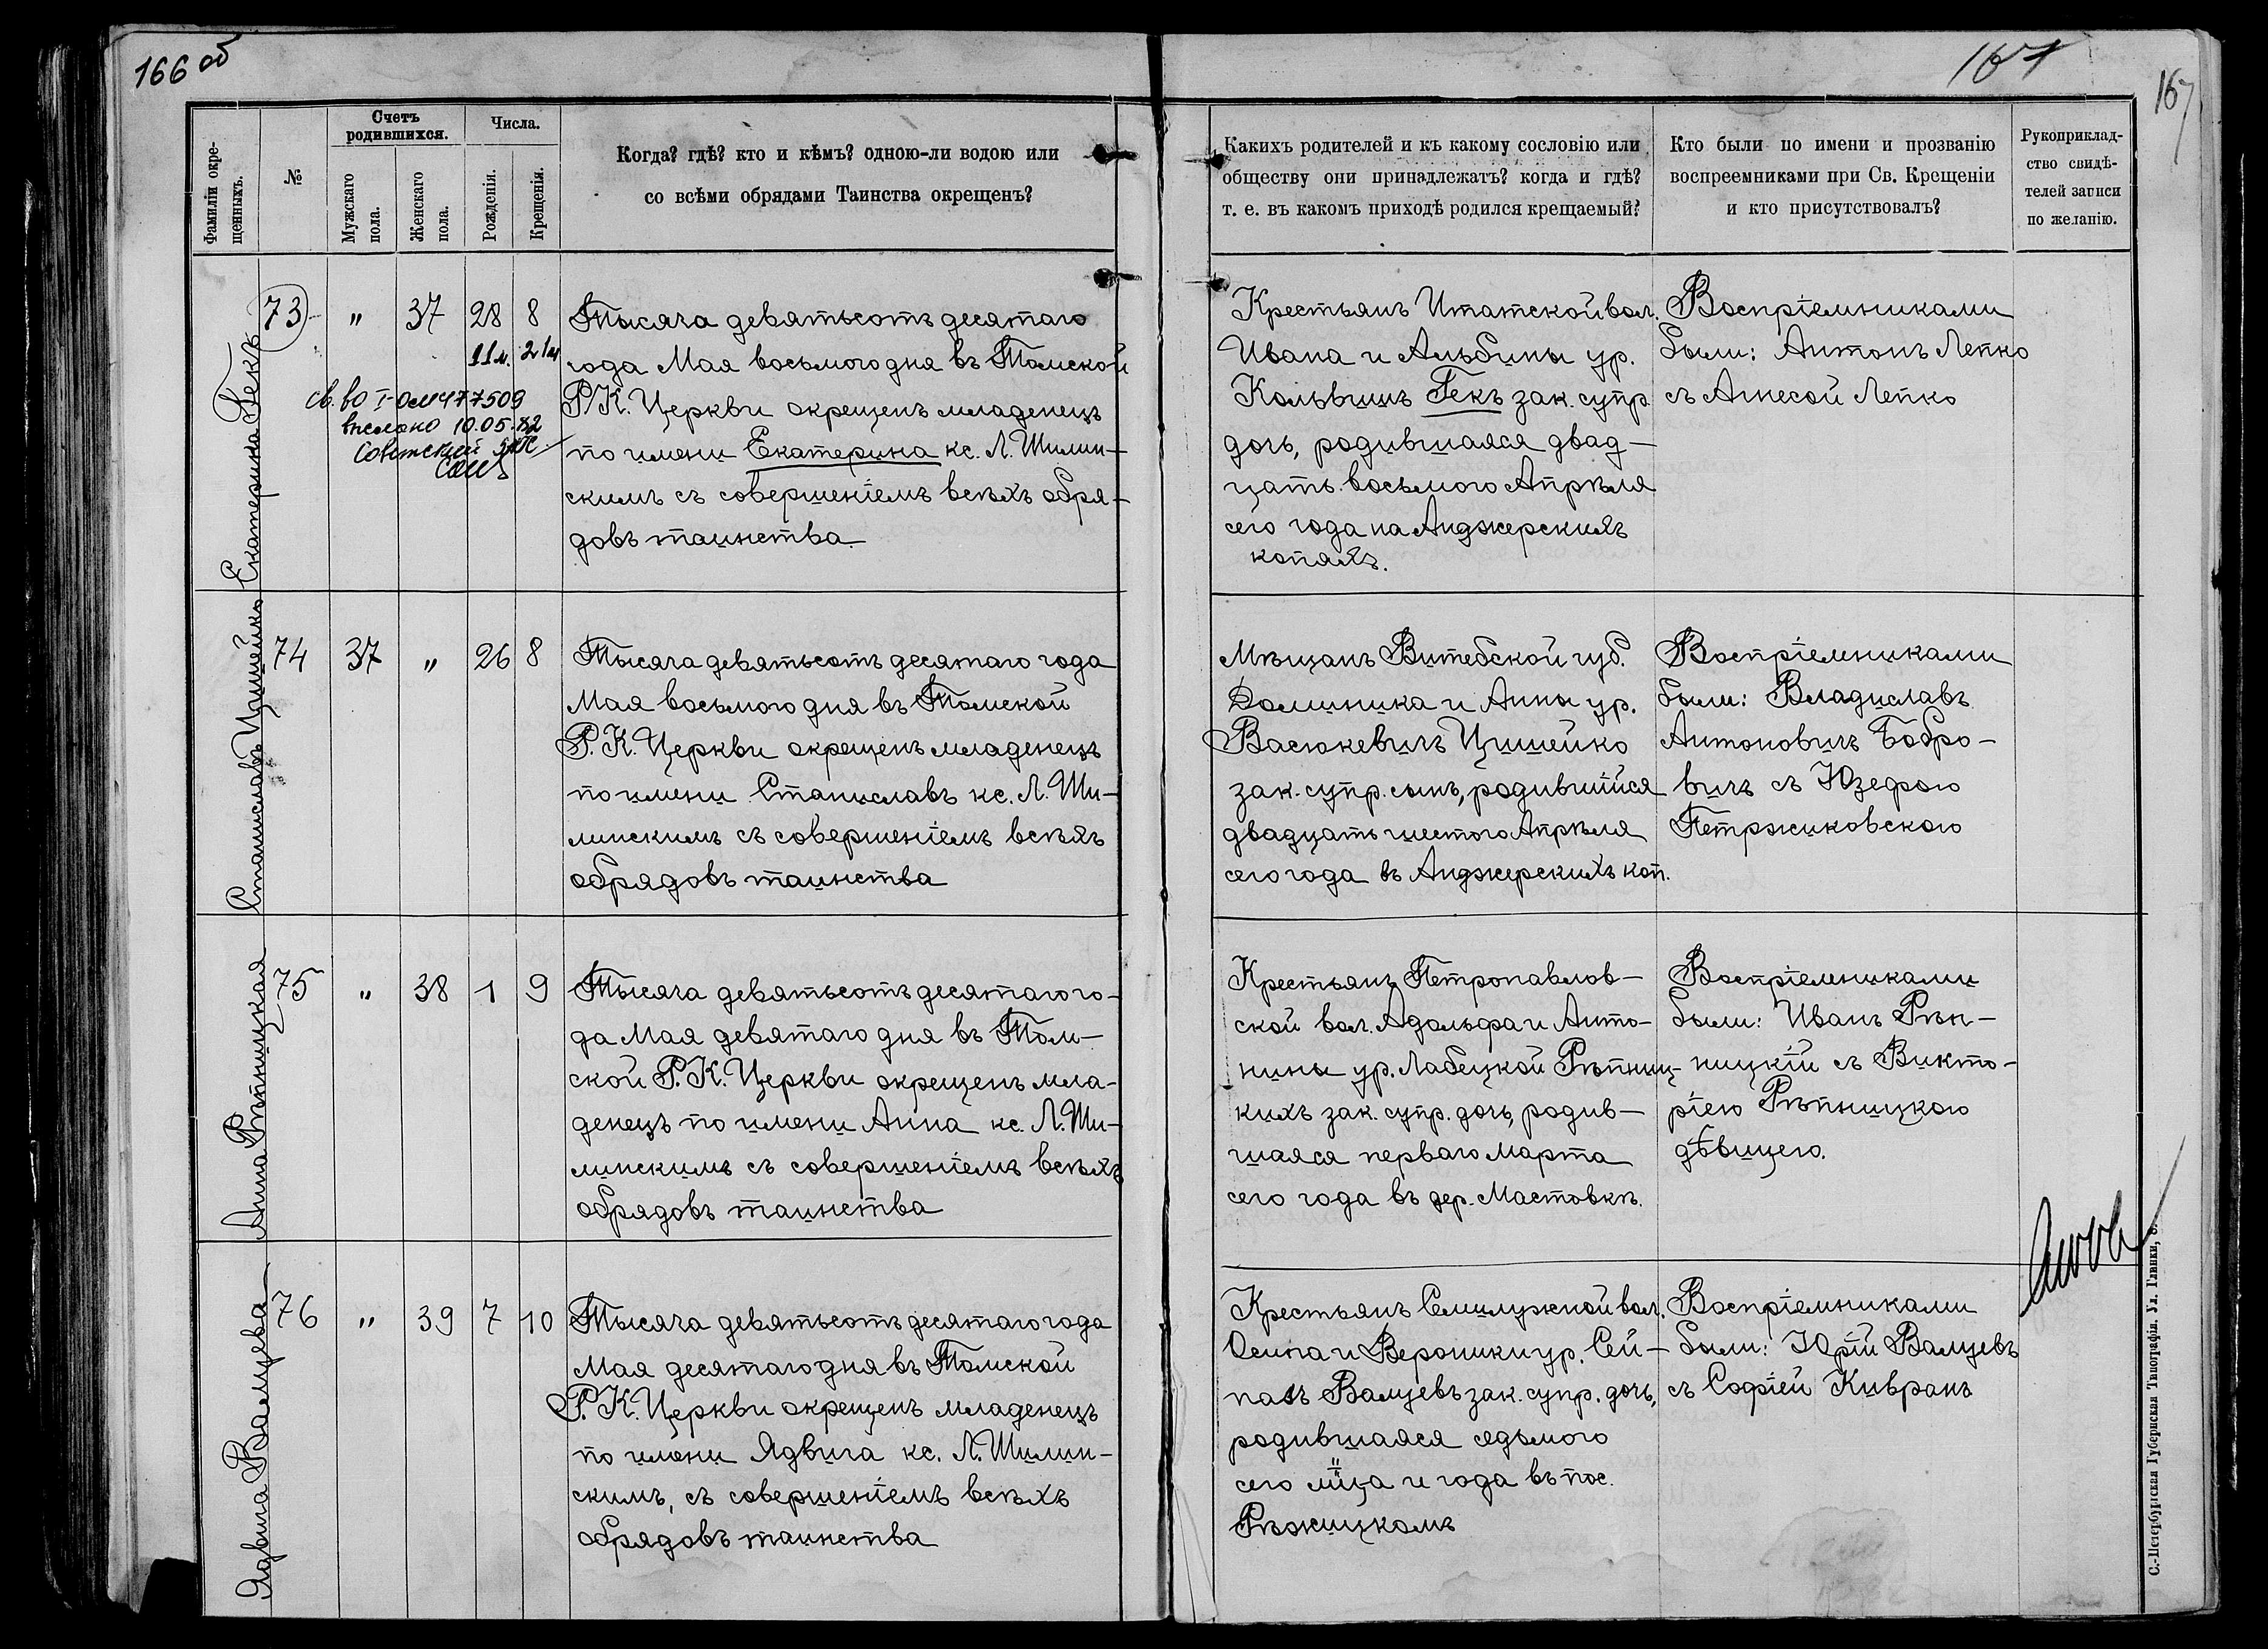 166 об
167
167
Фамиліи окре-
щенныхъ.
№
Счетъ
родившихся.
Мужскаго
пола.
Женскаго
пола.
Числа.
Рожденія.
Крещенія.
Когда? гдѣ? кто и кѣмъ? одною-ли водою или
со всѣми обрядами Таинства окрещенъ?
Какихъ родителей и къ какому сословію или
обществу они принадлежатъ? когда и гдѣ?
т. е. въ какомъ приходѣ родился крещаемый?
Кто были по имени и прозванію
воспреемниками при Св. Крещеніи
и кто присутствовалъ?
Рукоприклад-
ство свидѣ-
телей записи
по желанію.
Екатерина Гекъ
73
"
37
28
8
11м.
21м
св. во I-ОМ 477509
выслано 10.05.82
Советский ЗАГС
Тысяча девятьсотъ десятаго
года Мая восьмого дня въ Томской
Р. К. Церкви окрещенъ младенецъ
по имени Екатерина кс. Л. Шилин-
скимъ съ совершеніемъ всѣхъ обря-
довъ таинства.
Крестьянъ Итатской вол.
Ивана и Альбины ур.
Кольвишъ Гекъ зак. супр.
дочь, родившаяся двад-
цать восьмого Апрѣля
сего года на Анджерскихъ
копяхъ.
Воспріемниками
были: Антонъ Лепко
съ Агнесой Лепко
Станиславъ Цишейко
74
37
"
26
8
Тысяча девятьсотъ десятаго года
Мая восьмого дня въ Томской
Р. К. Церкви окрещенъ младенецъ
по имени Станиславъ кс. Л. Ши-
линскимъ съ совершеніемъ всѣхъ
обрядовъ таинства
Мѣщанъ Витебской губ.
Доминика и Анны ур.
Васюкевичъ Цишейко
зак. супр. сынъ, родившійся
двадцать шестого Апрѣля
сего года въ Анджерскихъ коп.
Воспріемниками
были: Владиславъ
Антоновичъ Бобро-
вичъ съ Юзефою
Петржиковскою
Анна Рѣпницкая
75
"
38
1
9
Тысяча девятьсотъ десятаго го-
да Мая девятаго дня въ Том-
ской Р. К. Церкви окрещенъ мла-
денецъ по имени Анна кс. Л. Ши-
линскимъ съ совершеніемъ всѣхъ
обрядовъ таинства
Крестьянъ Петропавлов-
ской вол. Адольфа и Анто-
нины ур. Лабецкой Рѣпниц-
кихъ зак. супр. дочь, родив-
шаяся перваго марта
сего года въ дер. Мастовкѣ.
Воспріемниками
были: Иванъ Рѣп-
ницкій съ Викто-
ріею Рѣпницкою
дѣвицею.
Ядвига Валуева
76
"
39
7
10
Тысяча девятьсотъ десятаго года
Мая десятаго дня въ Томской
Р. К. Церкви окрещенъ младенецъ
по имени Ядвига кс. Л. Шилин-
скимъ, съ совершеніемъ всѣхъ
обрядовъ таинства
Крестьянъ Семилужной вол.
Осипа и Вероники ур. Сей-
Валуевъ зак. супр. дочь,
родившаяся седьмого
сего мца и года въ пос.
Рѣжицкомъ
Воспріемниками
были: Юрій Валуевъ
съ Софіей Кивранъ
С.-Петербургская Губернская Типографія. Ул. Глинки, 8.